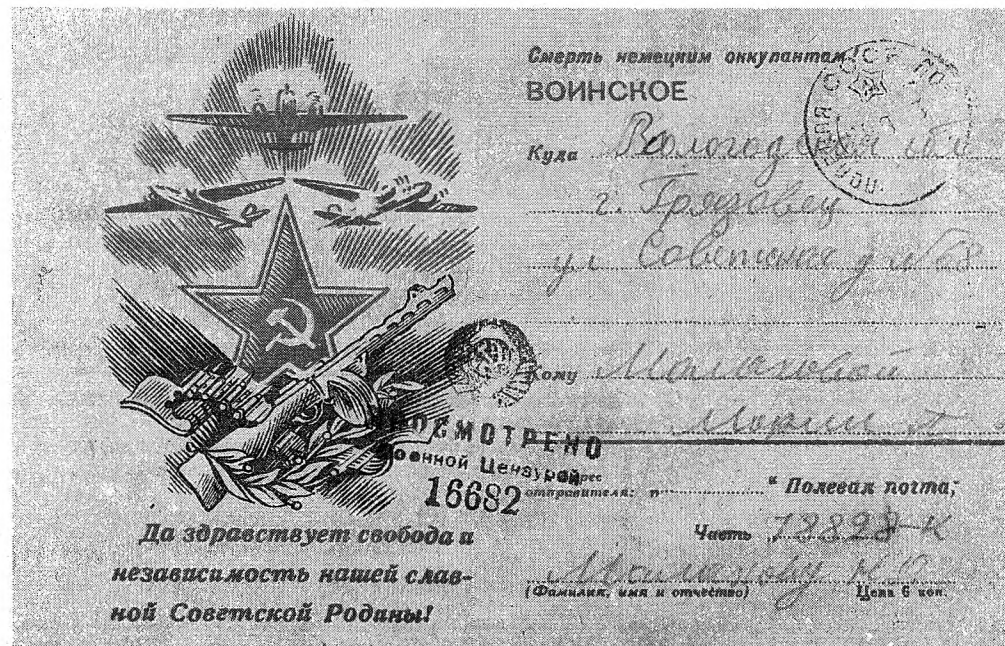 Смерть немецким оккупантам!
ВОИНСКОЕ
Куда Вологодская обл
г. Грязовец
ул Советская д №68
Кому Малаховой
Марии А
ПРОСМОТРЕНО
Военной Цензурой
16682
Адрес
отправителя: „ “ Полевая почта,
Часть 78828-К
Малахову
(Фамилия, имя и отчество) Цена 6 коп.
Да здравствует свобода и
независимость нашей слав-
ной Советской Родины!